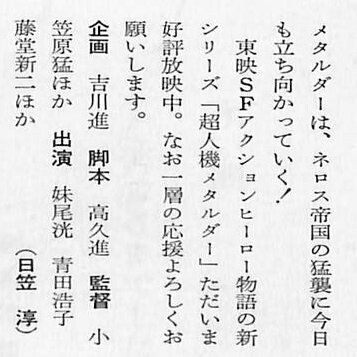 メタルダーは、ネロス帝国の猛襲に今日
も立ち向かっていく！
　東映ＳＦアクションヒーロー物語の新
シリーズ「超人機メタルダー」ただいま
好評放映中。なお一層の応援よろしくお
願いします。
企画　吉川進　脚本　高久進　監督　小
笠原猛ほか　出演　妹尾洸　青田浩子
藤堂新二ほか
（日笠　淳）